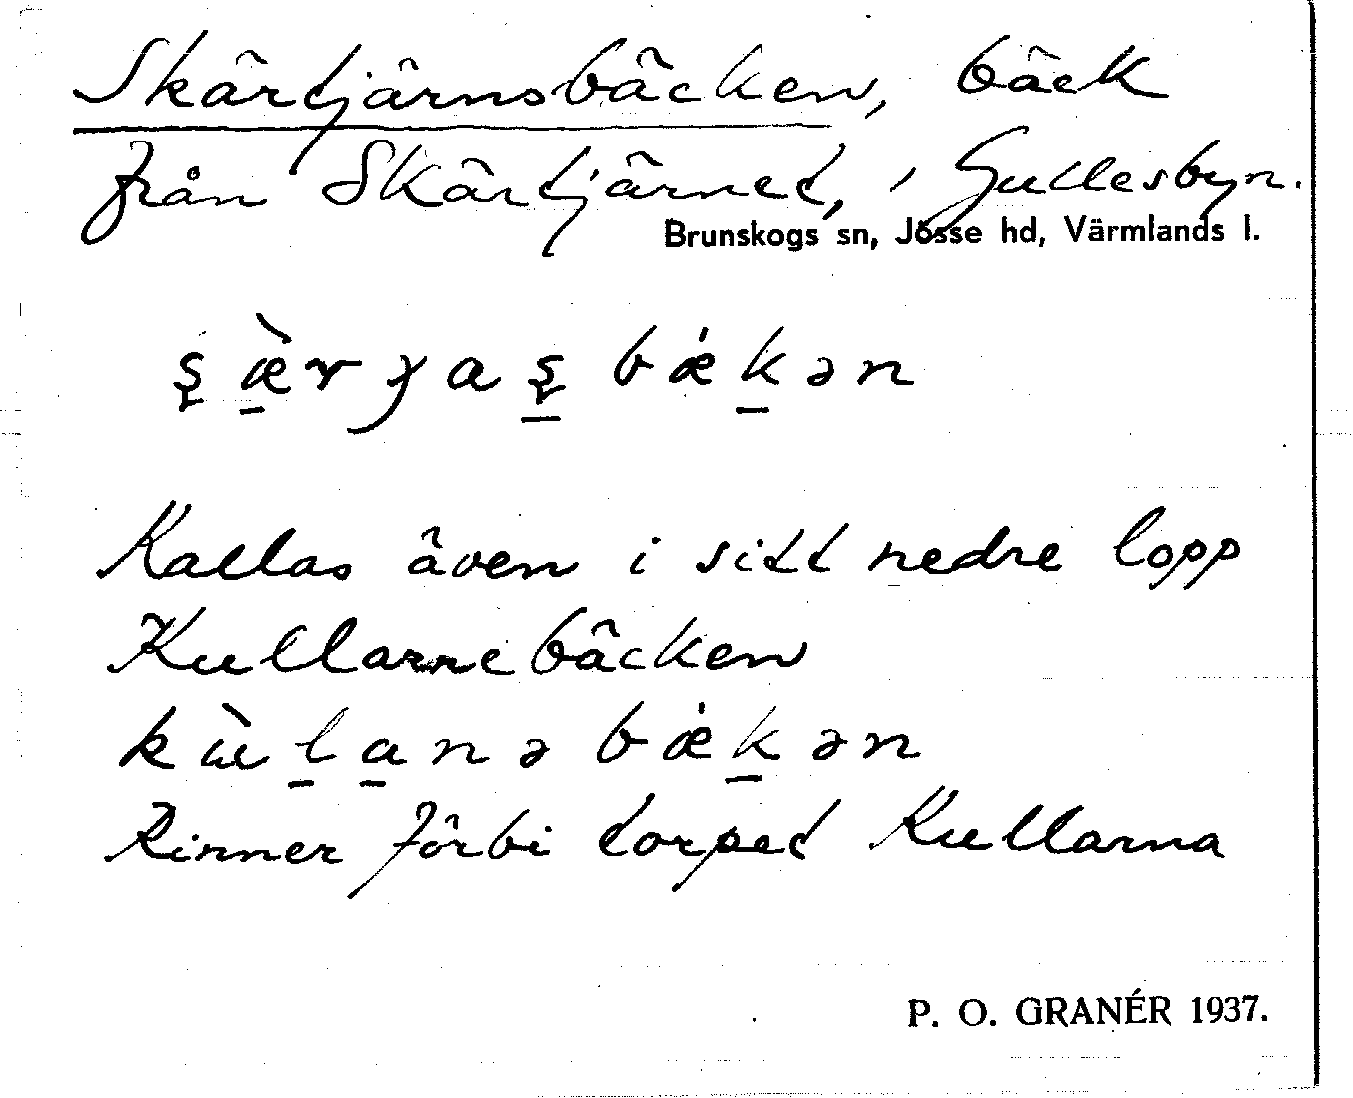 Skärtjärnsbäcken, bäck
från Skärtjärnet, i Gullesbyn.
Brunskogs sn, Jösse hd, Värmlands l.
Kallas även i sitt nedre lopp
Kullarnebäcken
Rinner förbi torpet Kullarna
P. O. GRANÉR 1937.